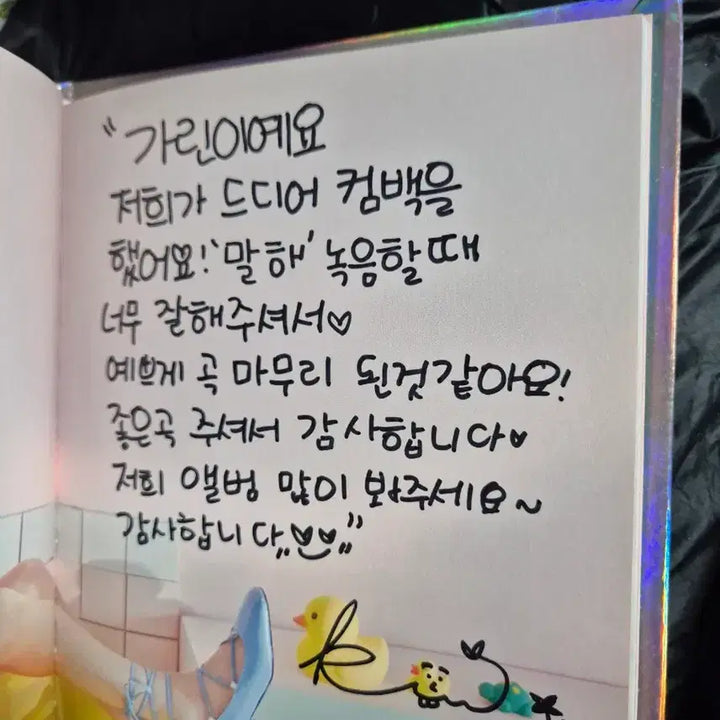 "가린이에요
저희가 드디어 컴백을
했어요! '말해' 녹음할때
너무 잘해주셔서♡
예쁘게 곡 마무리 된것같아요!
좋은곡 주셔서 감사합니다♥
저희 앨범 많이 봐주세요~
감사합니다"